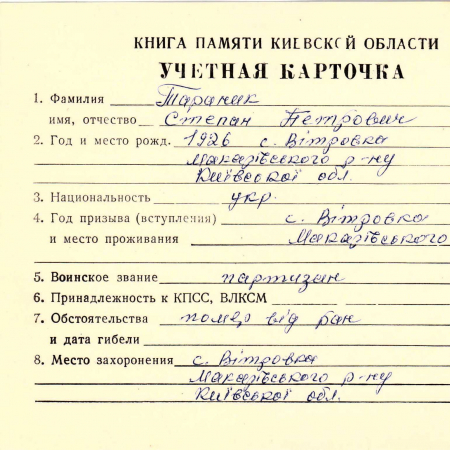 КНИГА ПАМЯТИ КИЕВСКОЙ ОБЛАСТИ
УЧЕТНАЯ КАРТОЧКА
1. Фамилия Тараник
имя, отчество Степан Петрович
2. Год и место рожд. 1926 с. Вітровка
Макарівського р-ну
Київської обл.
3. Национальность укр.
4. Год призыва (вступления) с. Вітровка
и место проживания Макарівського
5. Воинское звание партизан
6. Принадлежность к КПСС, ВЛКСМ
7. Обстоятельства помер від ран
и дата гибели
8. Место захоронения с. Вітровка
Макарівського р-ну
Київської обл.